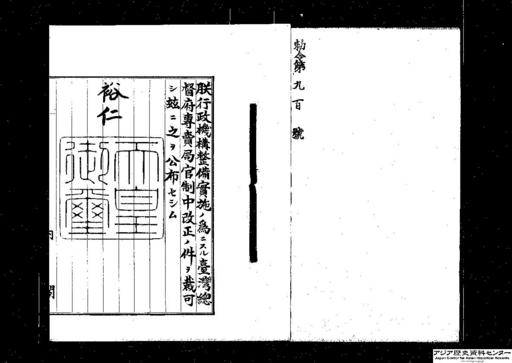 勅令第九百號
朕行政機構整備實施ノ爲ニスル臺灣總
督府專賣局官制中改正ノ件ヲ裁可
シ玆ニ之ヲ公布セシム
裕仁
天皇
御璽
内閣
アジア歴史資料センター
Japan Center for Asian Historical Records